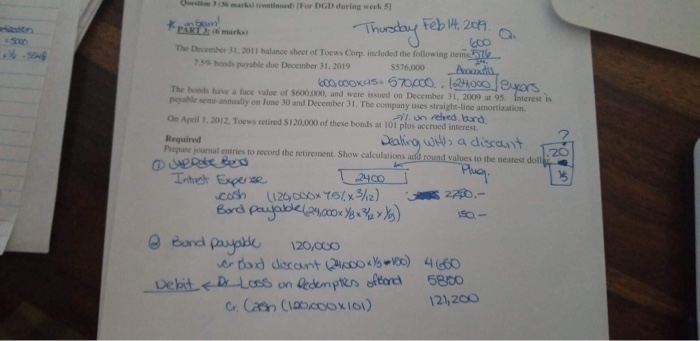 Question 3 (36 marks) (continued) [For DGD during week 5]
Thursday Feb 14, 2019. Q.
PART 2: (6 marks)
600
The December 31, 2011 balance sheet of Toews Corp. included the following items: 576
7.5% bonds payable due December 31, 2019 $576,000
600,000x95= 570,000. 24000 8years
The bonds have a face value of $600,000, and were issued on December 31, 2009 at 95. Interest is
payable semi-annually on June 30 and December 31. The company uses straight-line amortization.
On April 1, 2012, Toews retired $120,000 of these bonds at 101 plus accrued interest.
Dealing with a discount ?
Required
Prepare journal entries to record the retirement. Show calculations and round values to the nearest dollar. 120
① Update Bond Plug.
Intrest Expense 2400
cash (120,000x7.5%x3/12) 2250.-
Bond payable (24,000x1/8x3/12x1/5) 150.-
② Bond payable 120,000
cr Bond discount (24000x1/5-150) 4650
Debit ← Dr Loss on Redemption of Bond 5850
Cr. Cash (120,000x101) 121,200